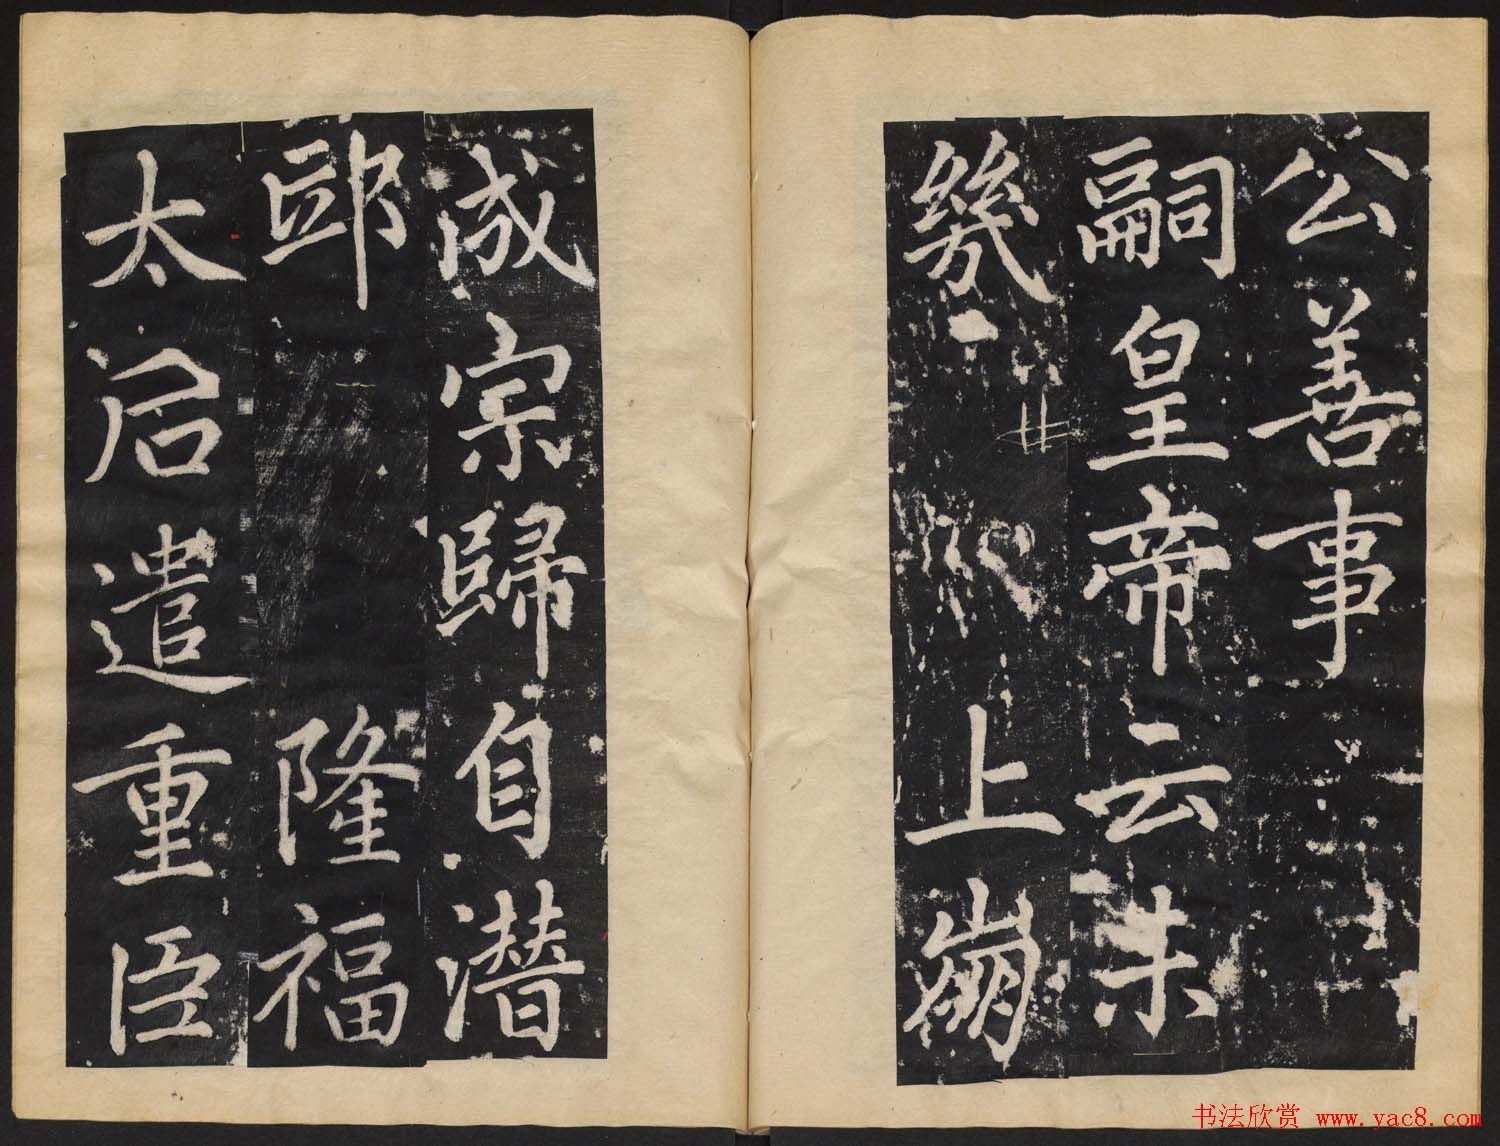 公善事
嗣皇帝云未
幾上崩
成宗歸自潛
邸隆福
太后遣重臣
书法欣赏 www.yac8.com